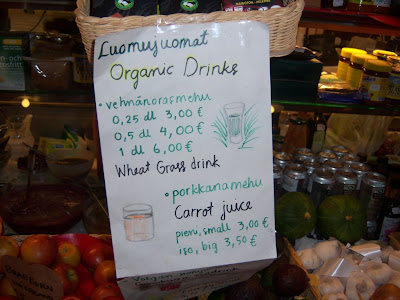 Luomujuomat
Organic Drinks
• vehnänorasmehu
0,25 dl 3,00 €
0,5 dl 4,00 €
1 dl 6,00 €
Wheat Grass drink
• porkkanamehu
Carrot juice
pieni, small 3,00 €
iso, big 3,50 €